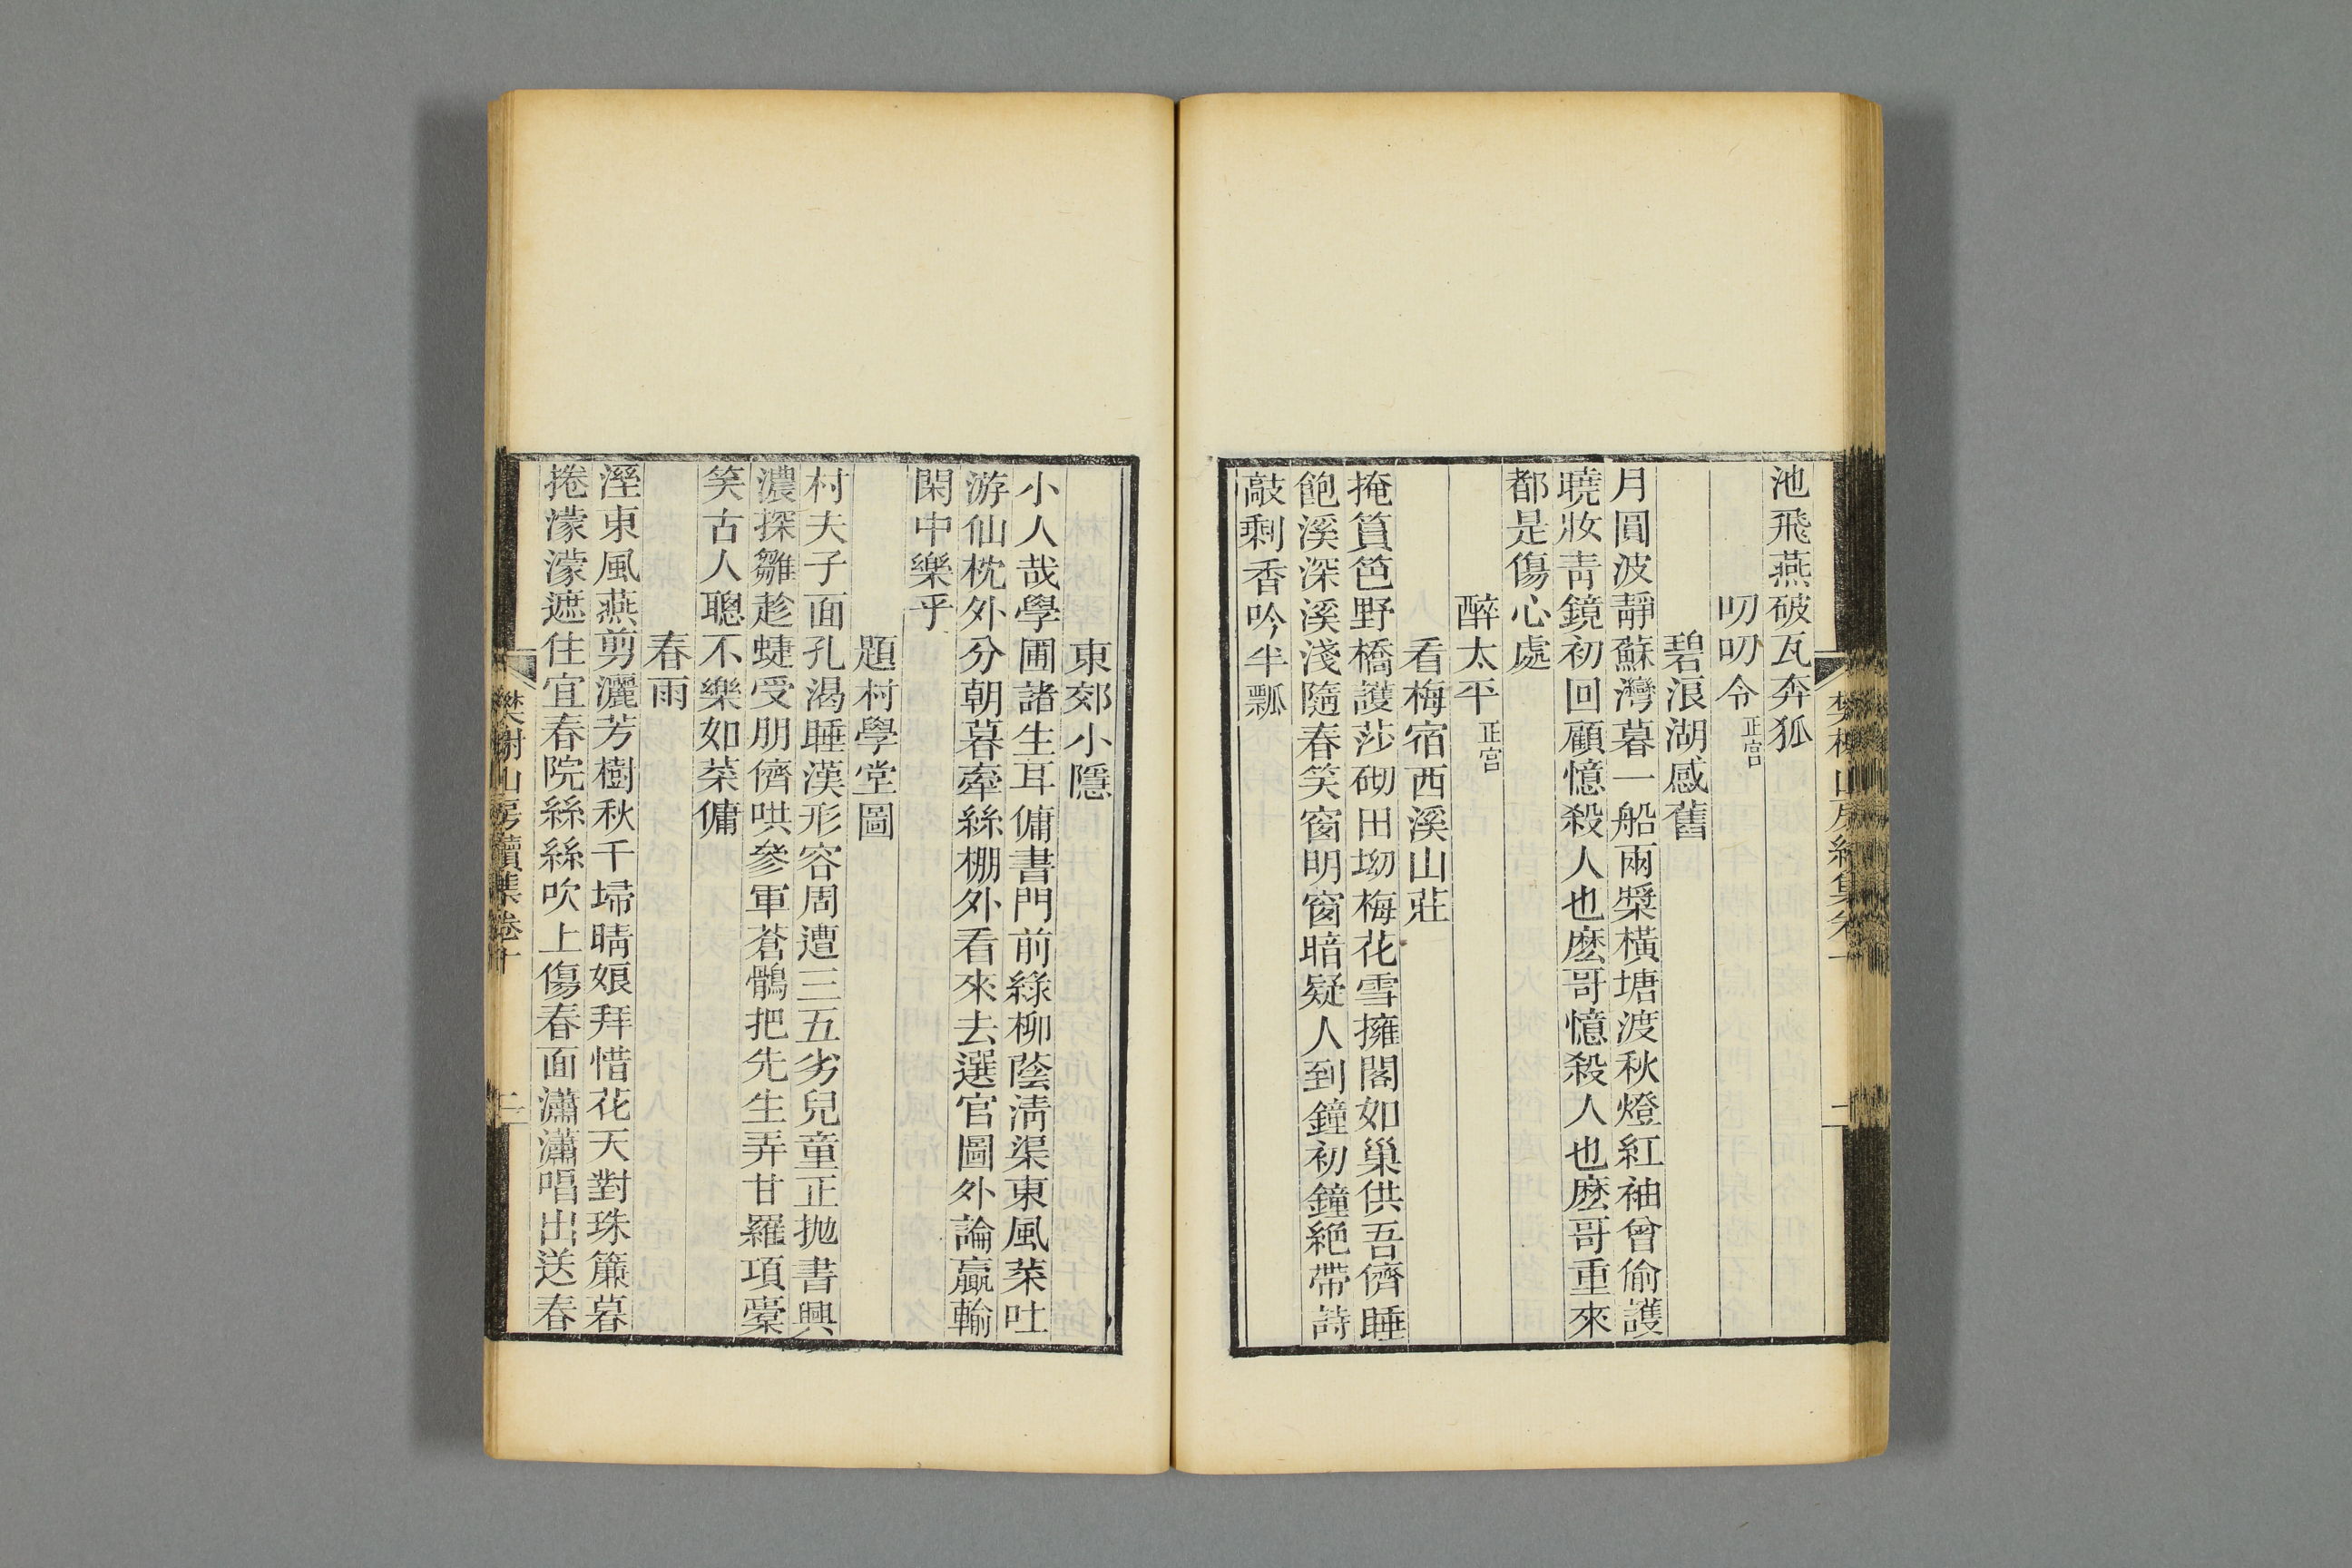 池飛燕破瓦奔狐
叨叨令正宮
碧浪湖感舊
月圓波靜蘇灣暮一船兩槳橫塘渡秋燈紅袖曾偷護
曉妝青鏡初回顧憶殺人也麽哥憶殺人也麽哥重來
都是傷心處
醉太平正宮
看梅宿西溪山莊
掩篔笆野橋護莎砌田坳梅花雪擁閣如巢供吾儕睡
飽溪深溪淺隨春笑窗明窗暗疑人到鐘初鐘絕帶詩
敲剩香吟半瓢
東郊小隱
小人哉學圃諸生耳傭書門前綠柳蔭清渠東風菜吐
游仙枕外分朝暮牽絲棚外看來去選官圖外論贏輸
閑中樂乎
題村學堂圖
村夫子面孔渴睡漢形容周遭三五劣兒童正拋書興
濃探雛趁蜨受朋儕哄參軍蒼鶻把先生弄甘羅項橐
笑古人聰不樂如菜傭
春雨
溼東風燕剪灑芳樹秋千埽晴娘拜惜花天對珠簾暮
捲濛濛遮住宜春院絲絲吹上傷春面瀟瀟唱出送春
樊榭山房續集卷十
二